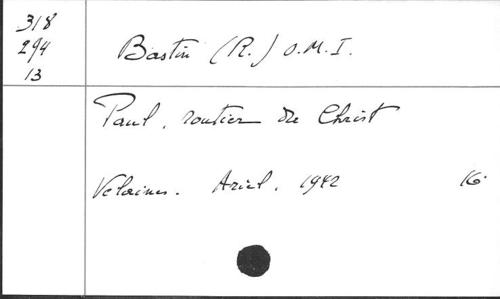 318
294
13
Bastin (R.) O.M.I.
Paul, routier du Christ
Velaines. Ariel, 1942 16°